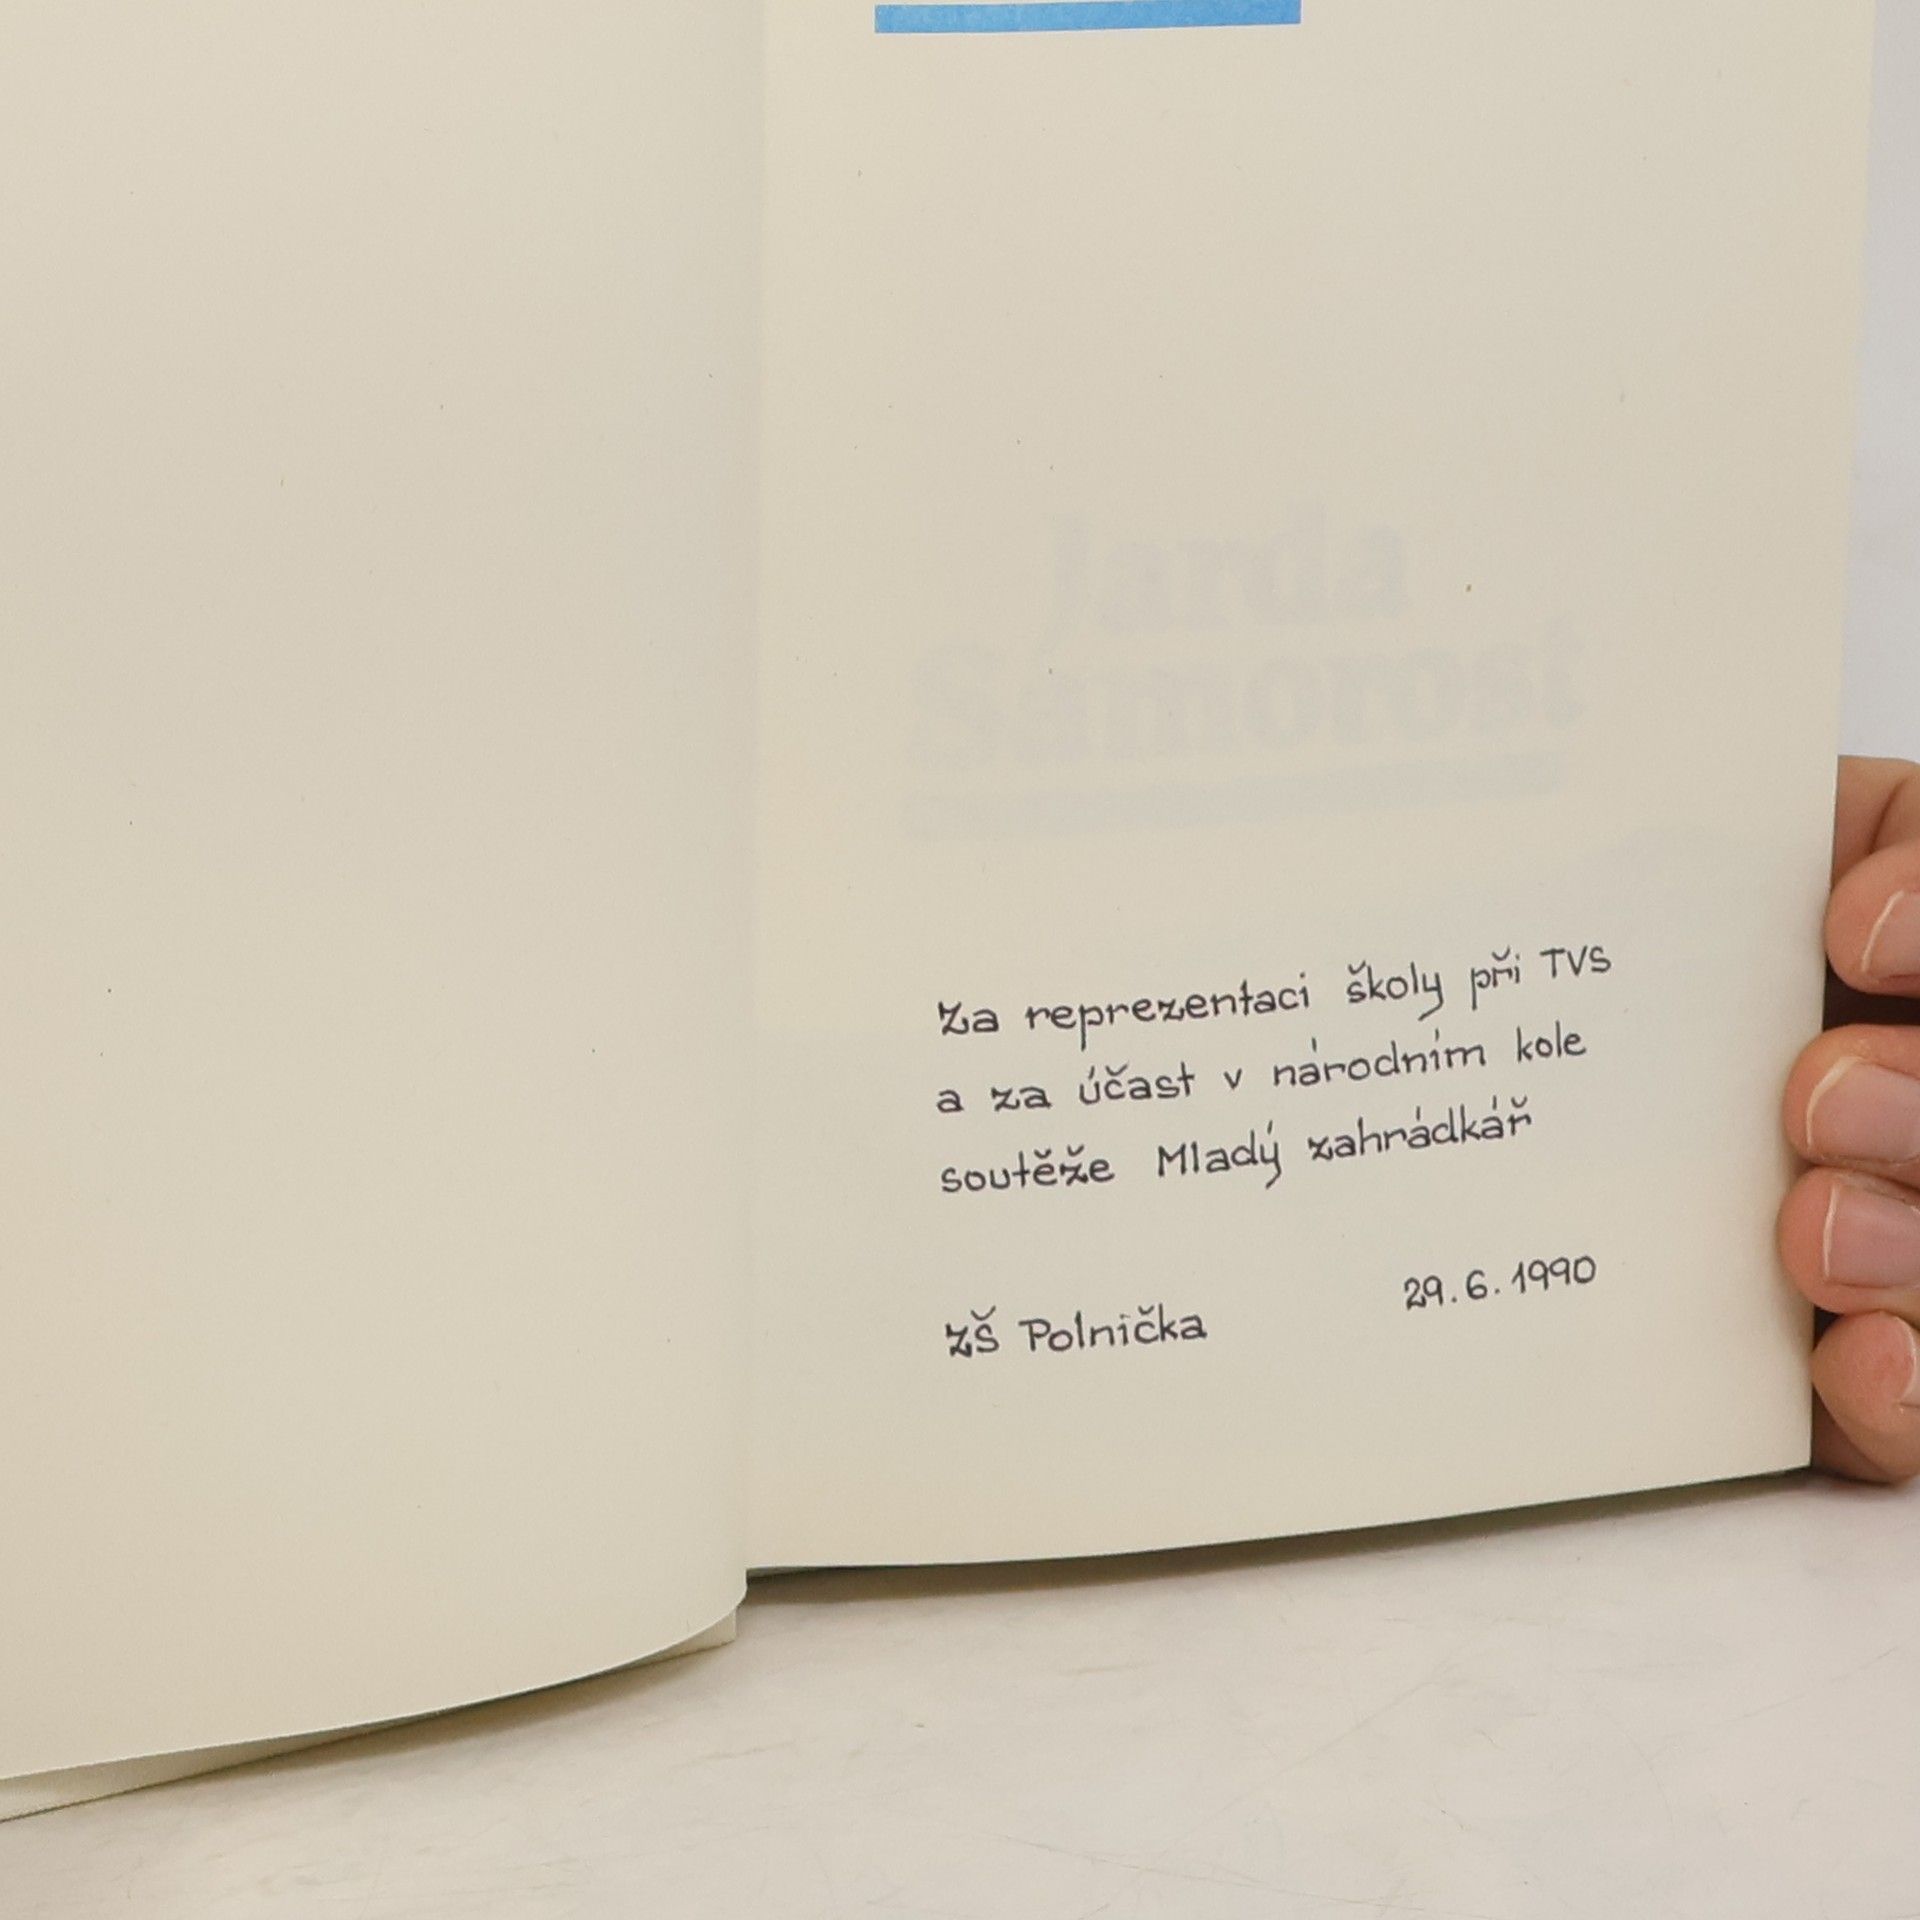 Jarda
Samorost
Za reprezentaci školy při TVS
a za účast v národním kole
soutěže Mladý zahrádkář
29.6.1990
ZŠ Polnička